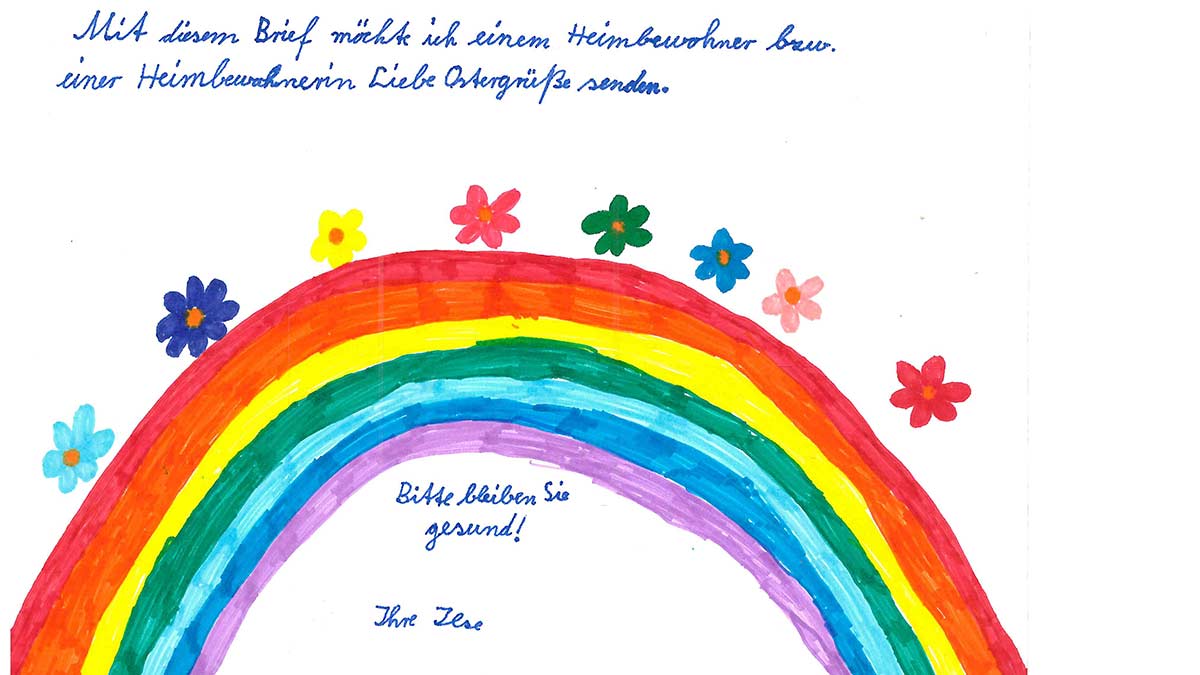 Mit diesem Brief möchte ich einem Heimbewohner bzw.
einer Heimbewohnerin Liebe Ostergrüße senden.
Bitte bleiben Sie
gesund!
Ihre Ilse